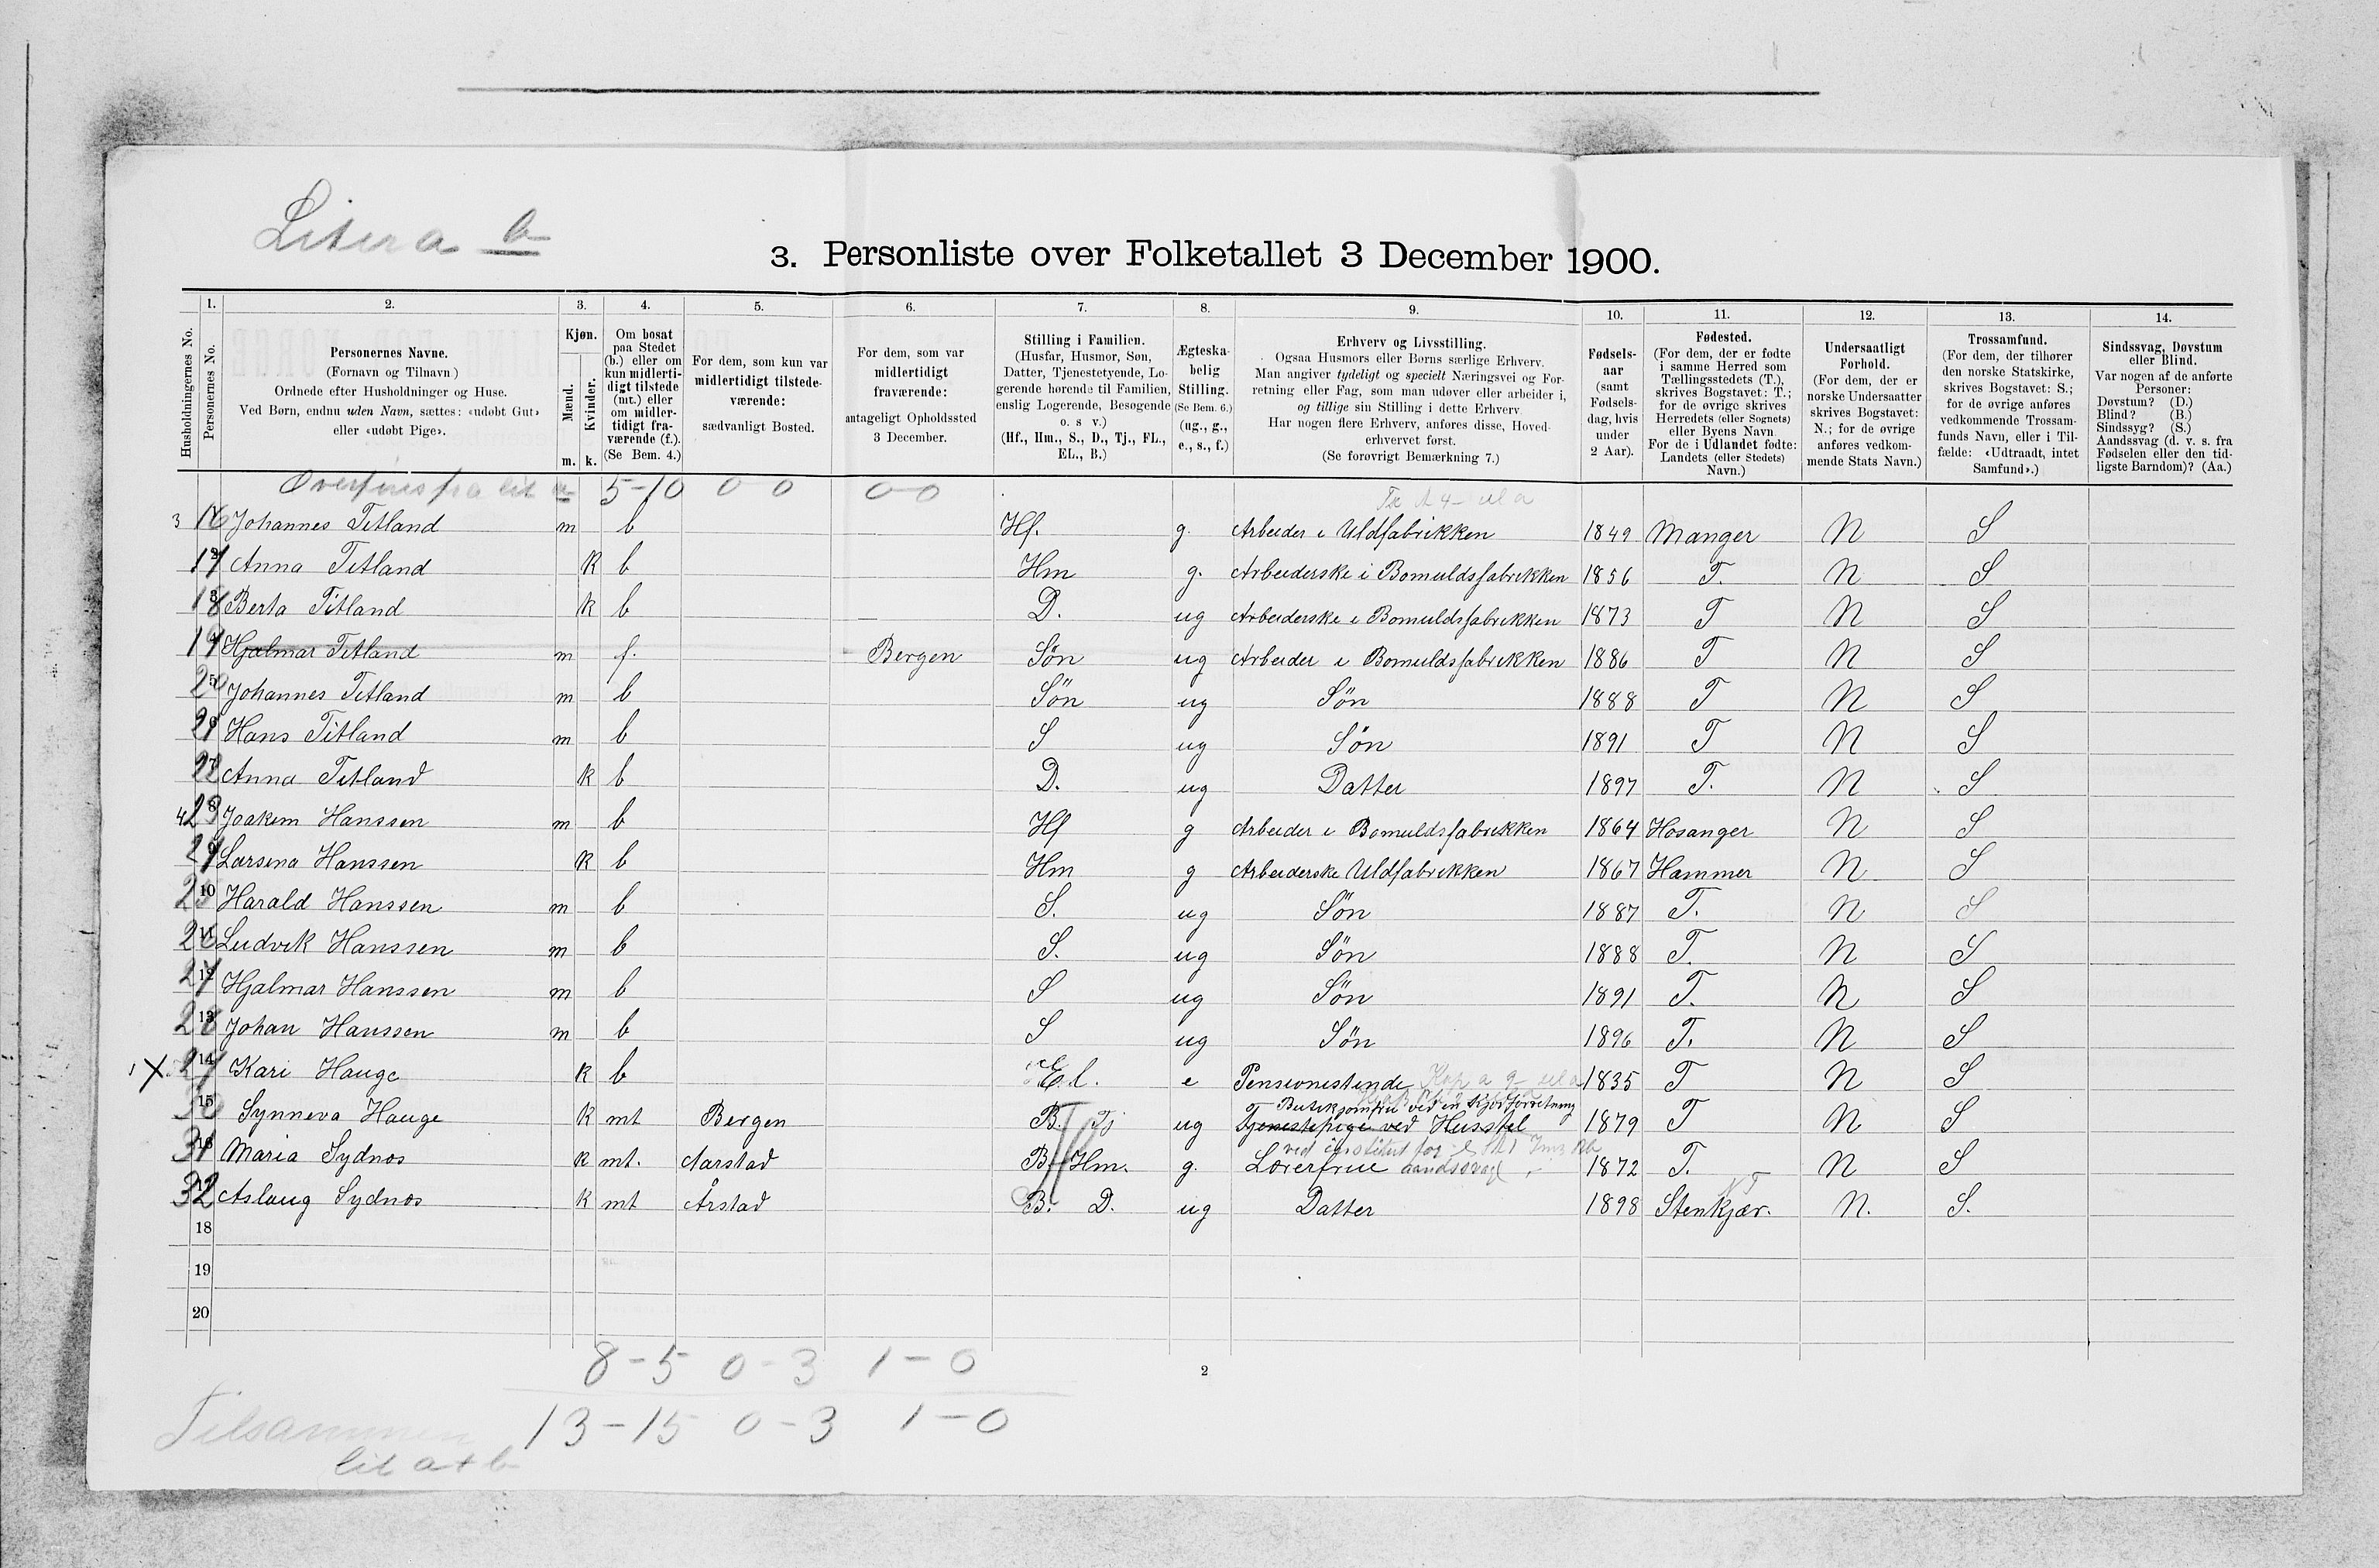 Litera b
3. Personliste over Folketallet 3 December 1900.
Husholdningernes No.
1.
Personernes No.
2.
Personernes Navne.
(Fornavn og Tilnavn)
Ordnede efter Husholdninger og Huse.
Ved Børn, endnu uden Navn, sættes: «udøbt Gut»
eller «udøbt Pige».
3.
Kjøn.
Mænd.
Kvinder.
m. k.
4.
Om bosat
paa Stedet
(b.) eller om
kun midlerti-
digt tilstede
(mt.) eller
om midler-
tidigt fra-
værende (f.).
(Se Bem. 4.)
5.
For dem, som kun var
midlertidigt tilstede-
værende:
sædvanligt Bosted.
6.
For dem, som var
midlertidigt
fraværende:
antageligt Opholdssted
3 December.
7.
Stilling i Familien.
(Husfar, Husmor, Søn,
Datter, Tjenestetyende, Lo-
gerende hørende til Familien,
enslig Logerende, Besøgende
o. s v.)
(Hf., Hm., S., D., Tj., FL.,
EL., B.)
8.
Ægteska-
belig
Stilling.
(Se Bem. 6.)
(ug., g.,
e., s., f.)
9.
Erhverv og Livsstilling.
Ogsaa Husmors eller Børns særlige Erhverv.
Man angiver tydeligt og specielt Næringsvei og For-
retning eller Fag, som man udøver eller arbeider i,
og tillige sin Stilling i dette Erhverv
Har nogen flere Erhverv, anføres disse, Hoved-
erhvervet først.
(Se forøvrigt Bemærkning 7.)
10.
Fødsels-
aar
(samt
Fødsels-
dag, hvis
under
2 Aar).
11.
Fødested.
(For dem, der er fødte
i samme Herred som
Tællingsstedets (T.),
skrives Bogstavet: T.;
for de øvrige skrives
Herredets (eller Sognets)
eller Byens Navn
For de i Udlandet fødte:
Landets (eller Stedets)
Navn.)
12.
Undersaatligt
Forhold.
(For dem, der er
norske Undersaatter
skrives Bogstavet:
N.; for de øvrige
anføres vedkom-
mende Stats Navn.)
13.
Trossamfund.
(For dem, der tilhører
den norske Statskirke,
skrives Bogstavet: S.;
for de øvrige anføres
vedkommende Trossam-
funds Navn, eller i Til-
fælde: «Udtraadt, intet
Samfund».)
14.
Sindssvag, Døvstum
eller Blind.
Var nogen af de anførte
Personer:
Døvstum? (D.)
Blind? (B.)
Sindssyg? (S.)
Aandssvag (d. v. s. fra
Fødselen eller den tid-
ligste Barndom)? (Aa.)
Overføres fra lit a 5-10 0 0 0-0
3 16 Johannes Titland m b Hf. g. Arbeider i Uldfabrikken 1849 Manger N S
17 Anna Titland k b Hm g. Arbeiderske i Bomuldsfabrikken 1856 T. N S
18 Berta Titland k b D. ug Arbeiderske i Bomuldsfabrikken 1873 T N S
19 Hjalmar Titland m f. Bergen Søn ug Arbeider i Bomuldsfabrikken 1886 T N S
20 Johannes Titland m b Søn ug Søn 1888 T N S
21 Hans Titland m b S ug Søn 1891 T N S
22 Anna Titland k b D. ug Datter 1897 T. N S
4 23 Joakim Hanssen m b Hf g Arbeider i Bomuldsfabrikken 1864 Hosanger N S
24 Larsina Hanssen k b Hm g Arbeiderske Uldfabrikken 1867 Hammer N S
25 10 Harald Hanssen m b S. ug Søn 1887 T. N S
26 11 Ludvik Hanssen m b S. ug Søn 1888 T. N S
27 12 Hjalmar Hanssen m b S ug Søn 1891 T. N S
28 13 Johan Hanssen m b S ug Søn 1896 T. N S
1 X 29 14 Kari Hauge k b El. e Pensionistinde 1835 T N S
Butikjomfru ved en Kjødforretning
30 15 Synneva Hauge k mt Bergen B. Tj ug Tjenestepige ved Husstel 1879 T N S
31 16 Maria Sydnes k mt. Aarstad B. Hm. g. Lærerfrue 1872 T. N S
32 17 Aslaug Sydnes k mt Årstad B. D. ug Datter 1898 Stenkjær. N. S.
18
19
20
8-5 0-3 1-0
2
Tilsammen 13-15 0-3 1-0
lit a+b